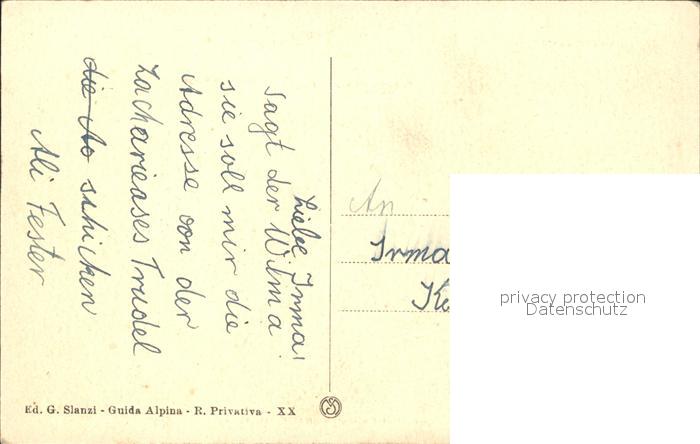 Liebe Irma!
Sagt der Wilma
sie soll mir die
Adresse von der
Zacharieases Trudel
die Ao schicken
Ali Fester
An
Irma
Ke
privacy protection
Datenschutz
Ed. G. Slanzi - Guida Alpina - R. Privativa - XX